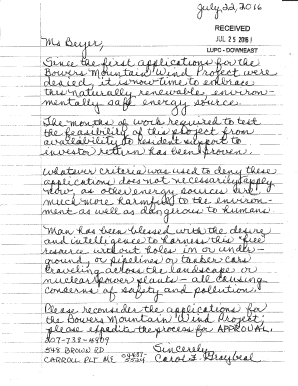 July 22, 2016
RECEIVED
JUL 25 2016
LUPC - DOWNEAST
Ms Beyer,
Since the first applications for the
Bowers Mountain Wind Project were
denied, it is now time to embrace
this naturally renewable, environ-
mentally safe energy source.
The months of work required to test
the feasibility of this project from
availability to resident support to
investor return has been proven.
Whatever criteria was used to deny these
applications does not necessarily apply
now, as other energy sources are
much more harmful to the environ-
ment as well as dangerous to humans
Man has been blessed with the desire
and intelligence to harness this "free"
resource without holes in or under-
ground, or pipelines or tanker cars
traveling across the landscape or
nuclear power plants - all causing
concerns of safety and pollution.
Please reconsider the applications for
the Bowers Mountain Wind Project;
please expedite the process for APPROVAL.
207-738-4809
Sincerely
CARROLL PLT ME
Carol F. Graybeal